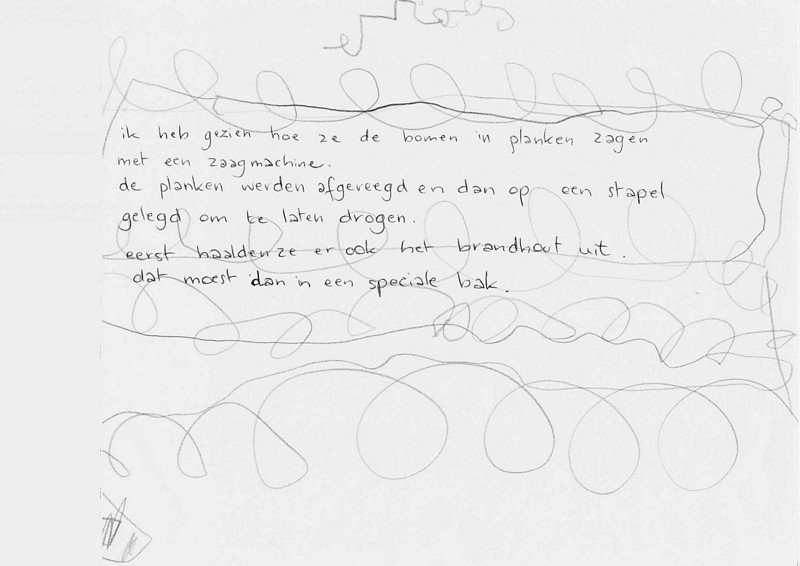 ik heb gezien hoe ze de bomen in planken zagen
met een zaagmachine.
de planken werden afgeveegd en dan op een stapel
gelegd om te laten drogen.
eerst haalden ze er ook het brandhout uit.
dat moest dan in een speciale bak.